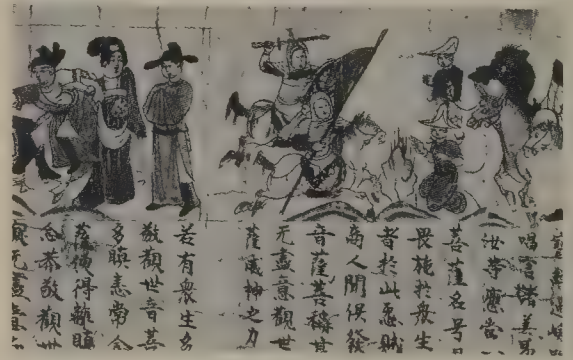 唱言諸善男
汝等應當一
菩薩名号
畏施於衆生
者於此怨賊
商人聞俱發
音薩菩稱其
无盡意觀世
薩威神之力
若有衆生多
敬觀世音菩
多瞋恚常念
薩便得離瞋
念恭敬觀世
无盡意